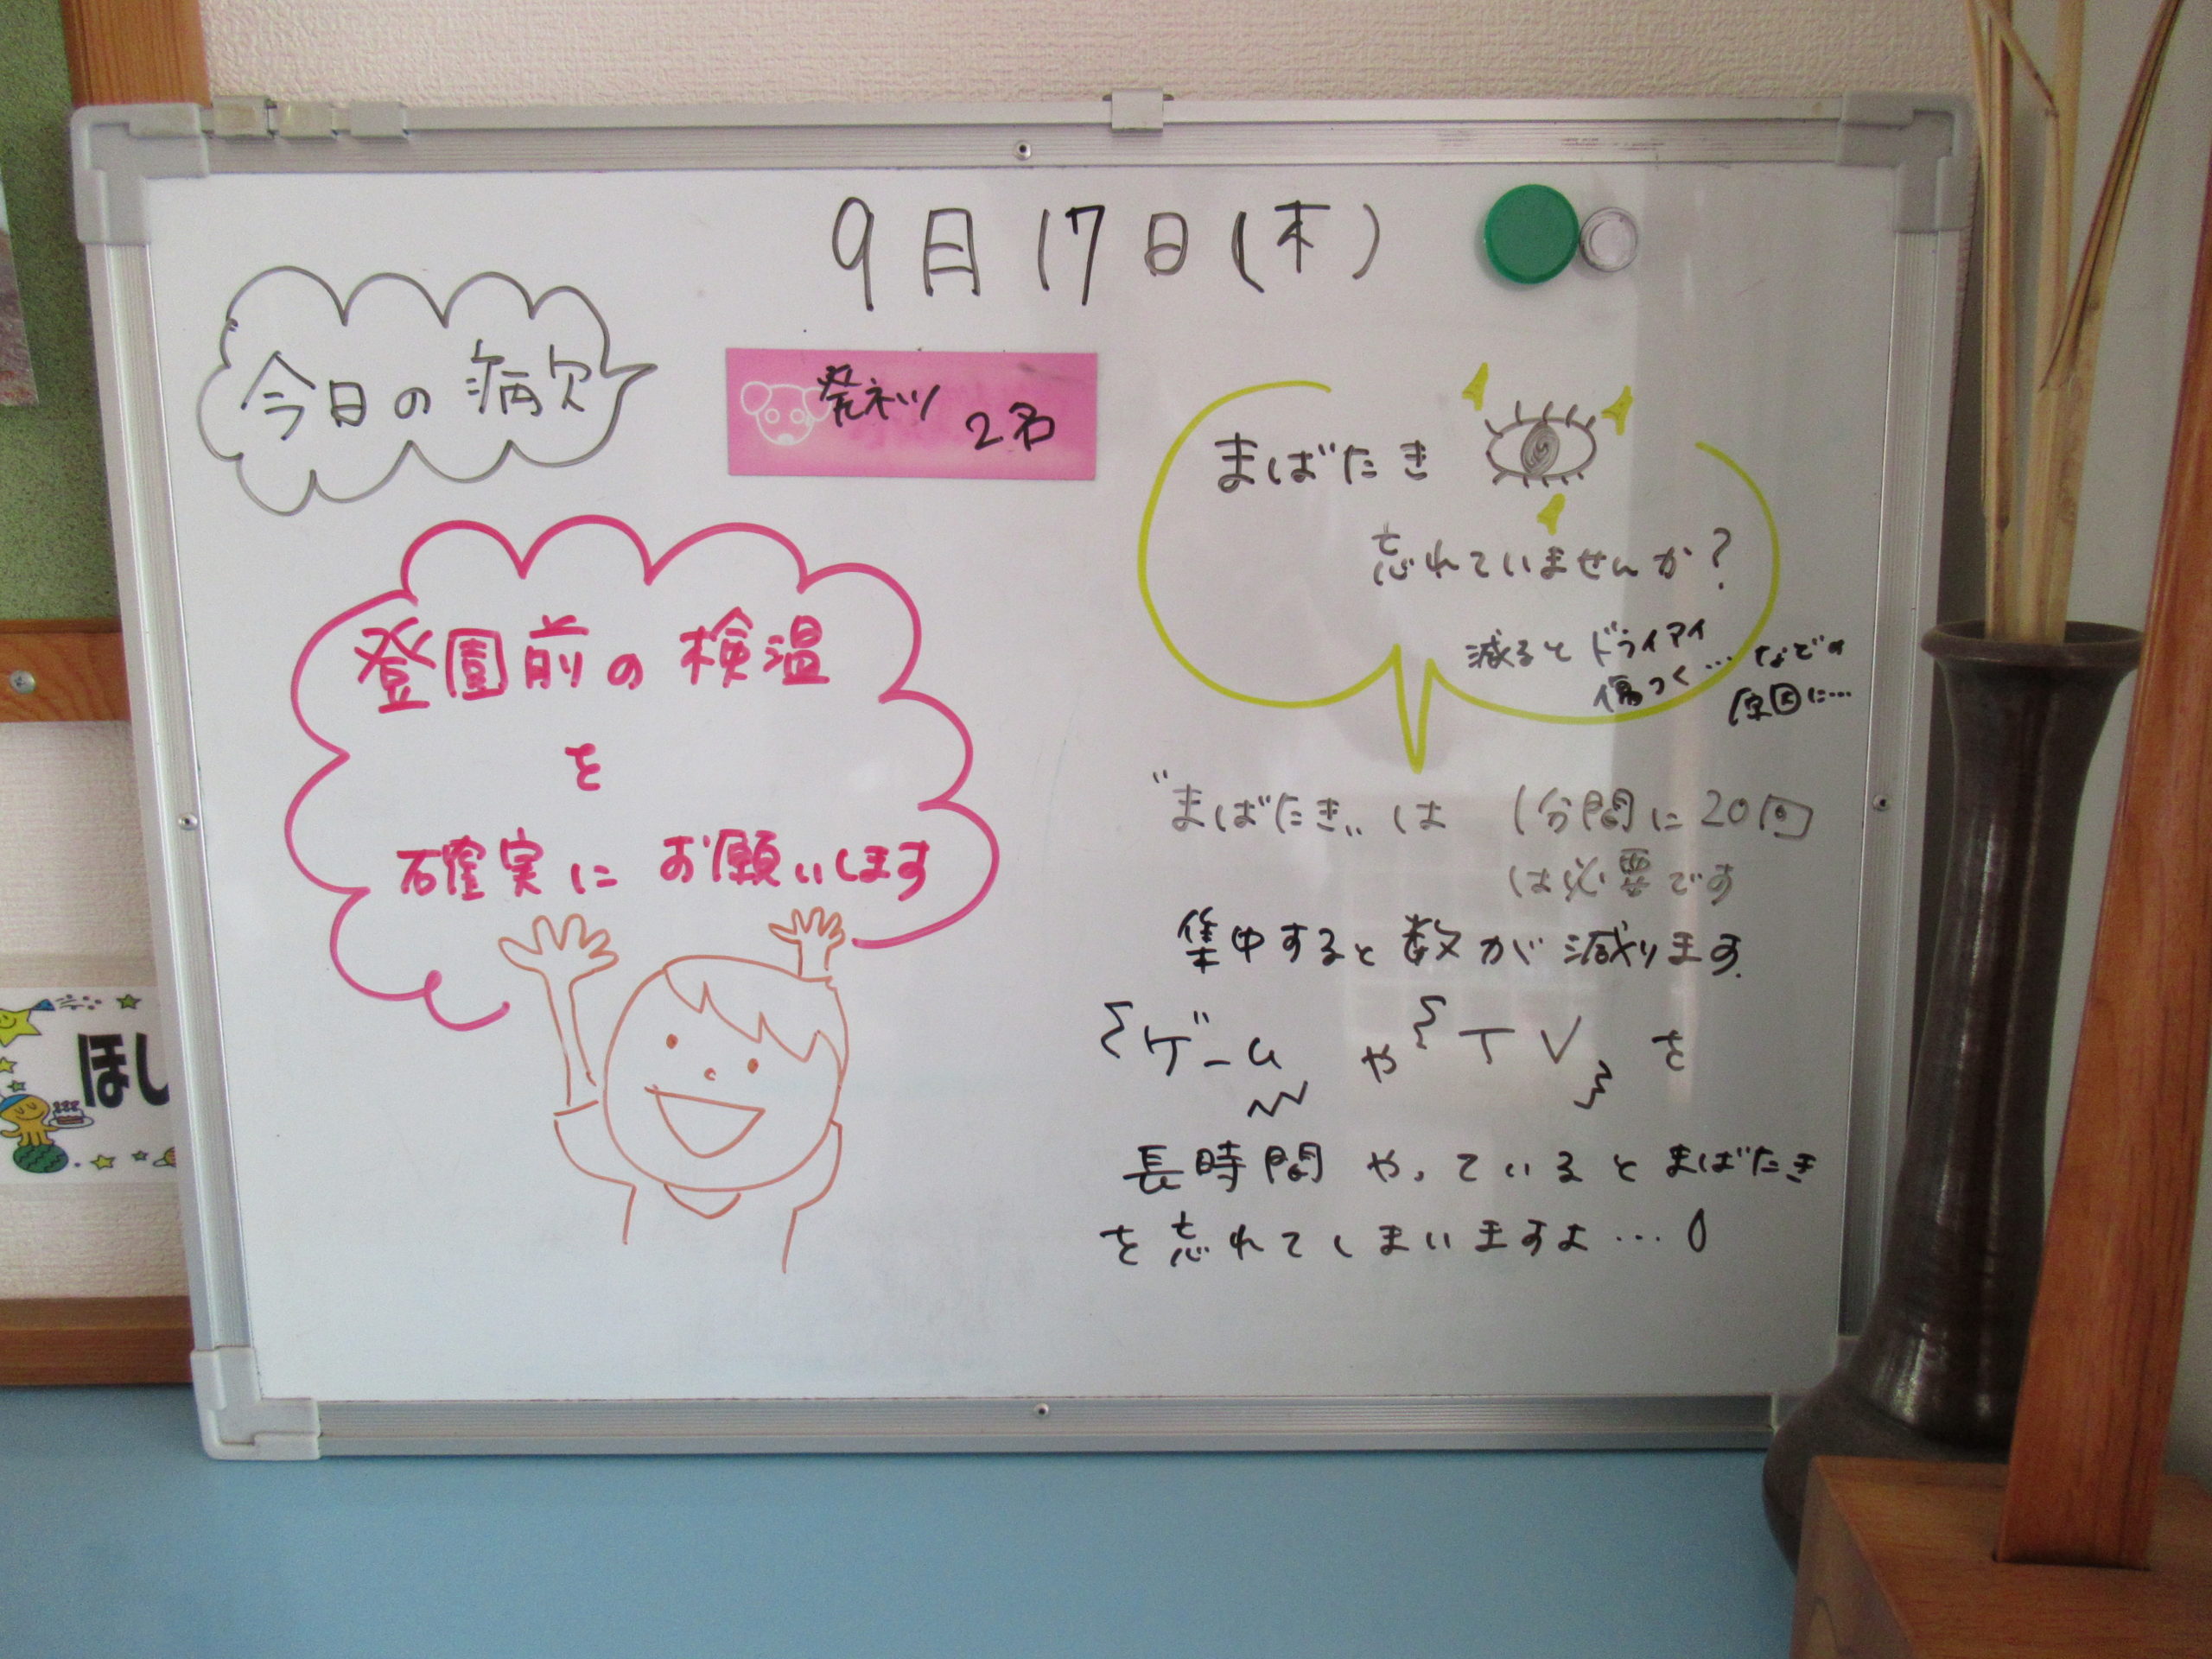 9月17日(木)
今日の病欠
発ネツ 2名
登園前の検温
を
確実に お願いします
まばたき
忘れていませんか？
減ると ドライアイ
傷つく… などの
原因に…
"まばたき„は 1分間に20回
は必要です
集中すると数が減ります.
ゲーム や TV を
長時間 やっていると まばたき
を忘れてしまいますよ…
ほし